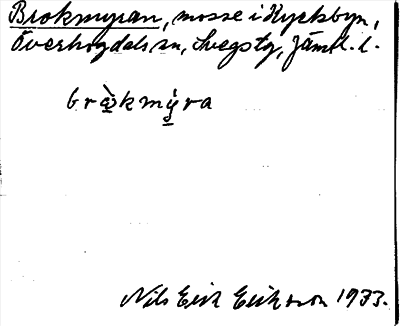 Brokmyran, mosse i Kyckbyn,
Överhogdals sn, Svegs tg, Jämtl. l.
bròkmýra
Nils Erik Eriksson 1933.